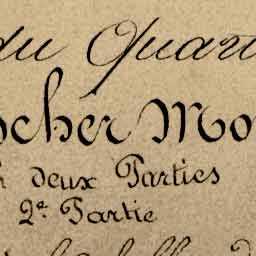 du Quar
scher Mo
n deux Parties
2e Partie